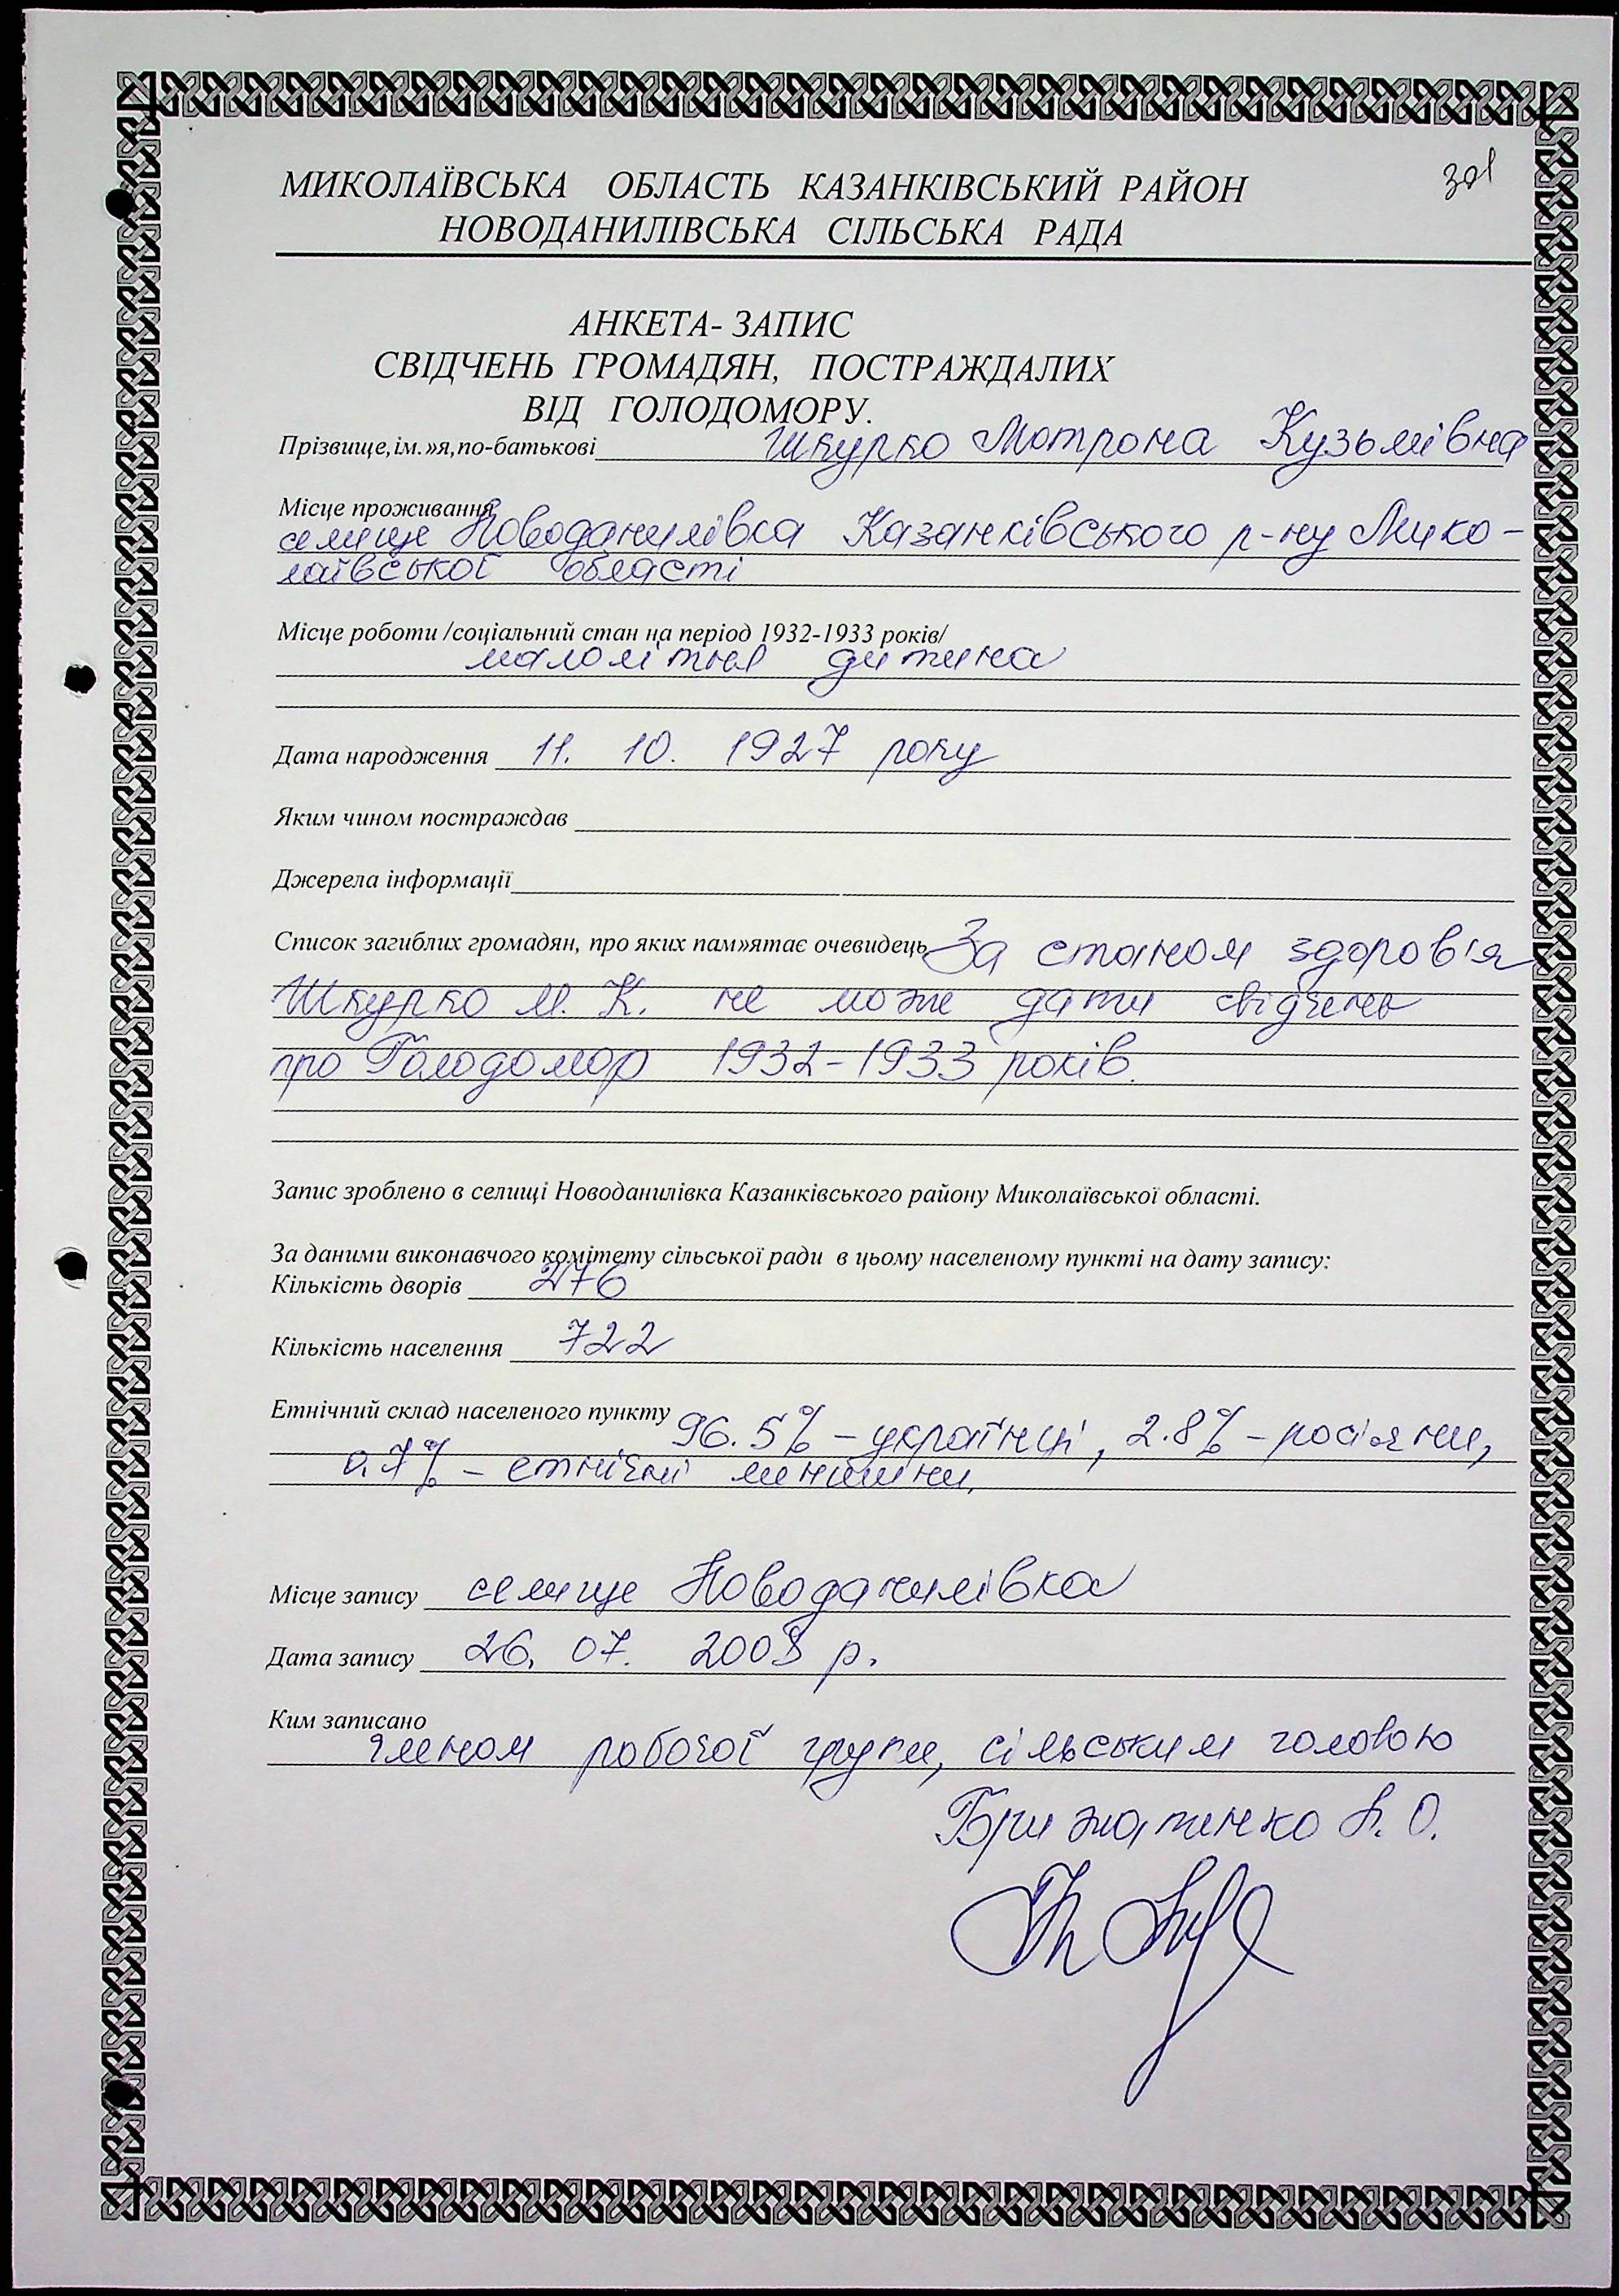 301
МИКОЛАЇВСЬКА ОБЛАСТЬ КАЗАНКІВСЬКИЙ РАЙОН
НОВОДАНИЛІВСЬКА СІЛЬСЬКА РАДА
АНКЕТА- ЗАПИС
СВІДЧЕНЬ ГРОМАДЯН, ПОСТРАЖДАЛИХ
ВІД ГОЛОДОМОРУ.
Прізвище,ім.»я,по-батькові Шкурко Мотрона Кузьмівна
Місце проживання
селище Новоданилівка Казанківського р-ну Мико-
лаївської області
Місце роботи /соціальний стан на період 1932-1933 років/
малолітня дитина
Дата народження 11. 10. 1927 року
Яким чином постраждав
Джерела інформації
Список загиблих громадян, про яких пам»ятає очевидець За станом здоров'я
Шкурко М. К. не може дати свідчень
про Голодомор 1932-1933 років.
Запис зроблено в селищі Новоданилівка Казанківського району Миколаївської області.
За даними виконавчого комітету сільської ради в цьому населеному пункті на дату запису:
Кількість дворів 276
Кількість населення 722
Етнічний склад населеного пункту 96.5% - українці, 2.8% - росіяни,
0.7% - етнічні меншини.
Місце запису селище Новоданилівка
Дата запису 26. 07. 2008 р.
Ким записано
членом робочої групи, сільським головою
Брижатенко А. О.